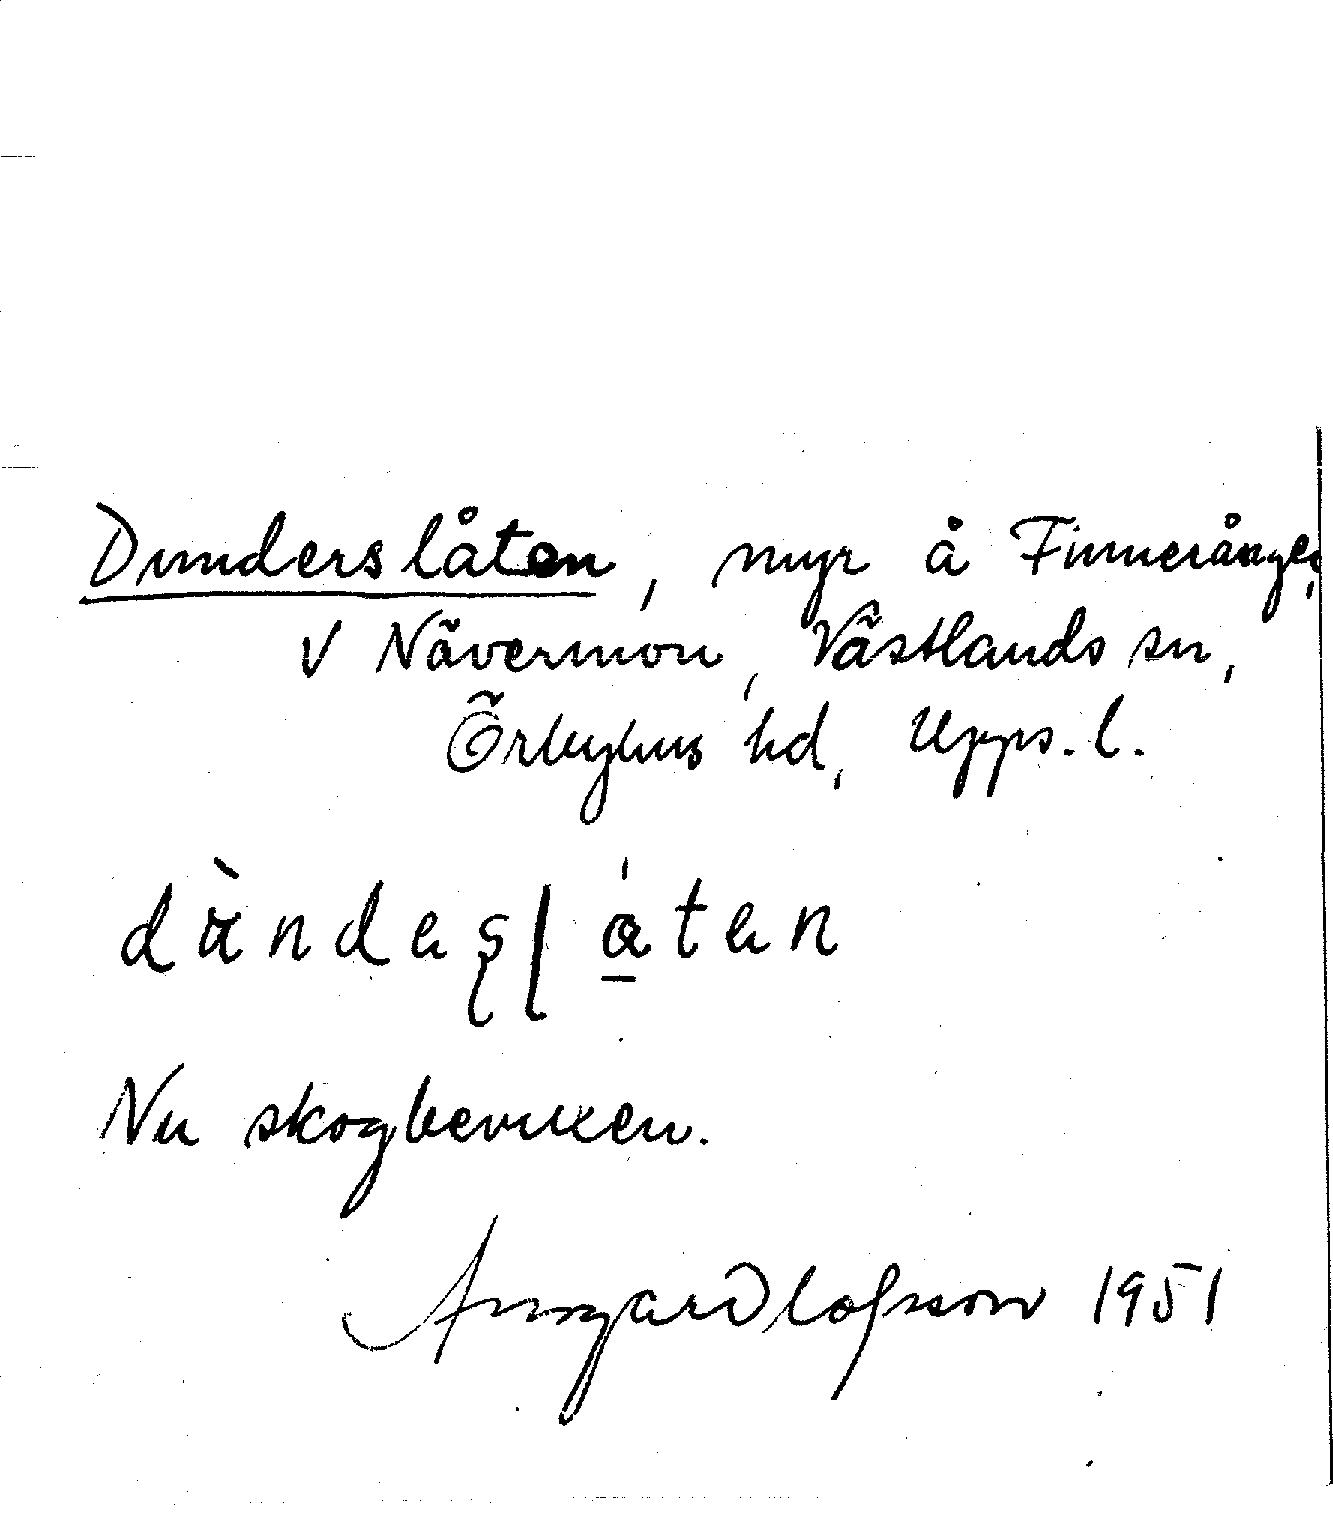 Dunderslåten, myr å Finnerånger,
V Nävermon, Västlands sn,
Örbyhus hd, Upps. l.
dàndaṣḷåtan
Nu skogbevuxen.
Olofsson 1951